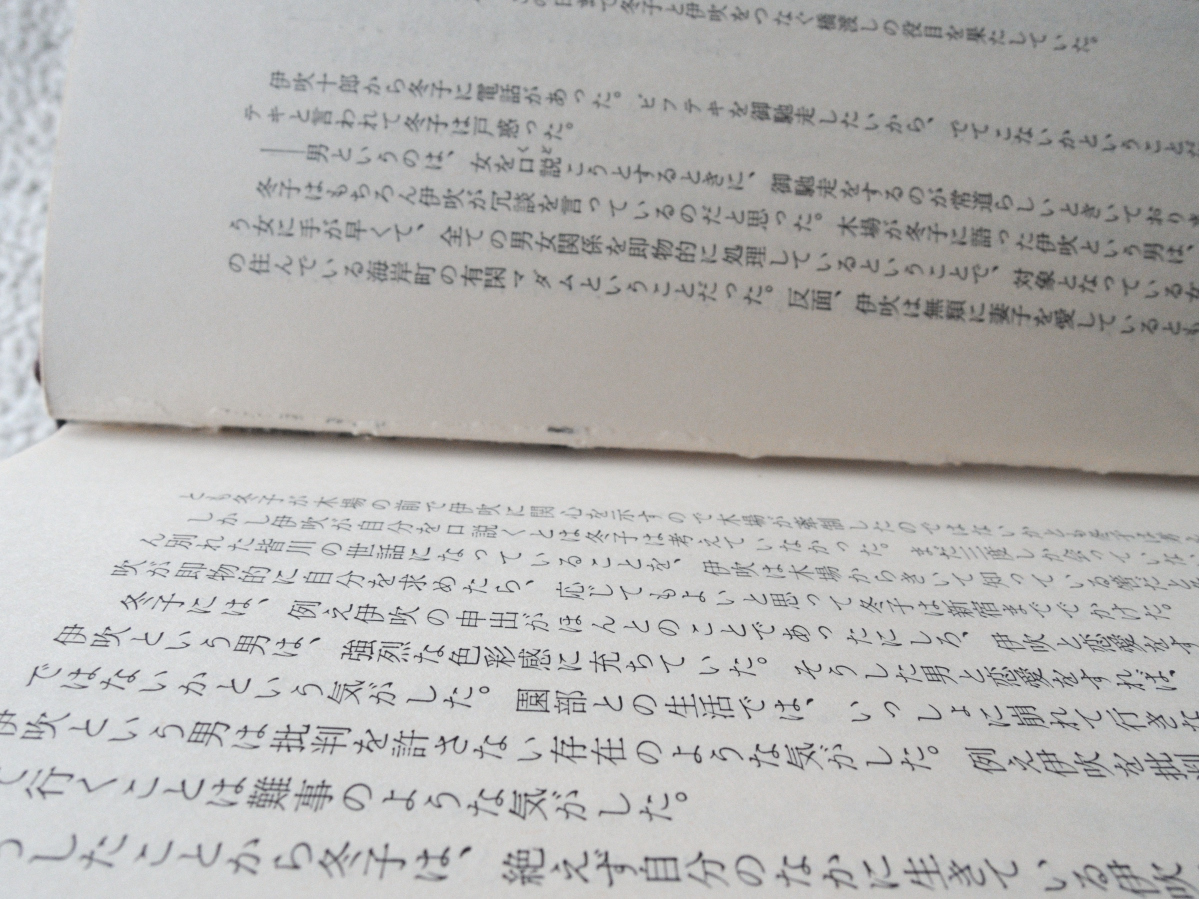 の日まで冬子と伊吹をつなぐ橋渡しの役目を果たしていた。
伊吹十郎から冬子に電話があった。ビフテキを御馳走したいから、でてこないかということだ
テキと言われて冬子は戸惑った。
――男というのは、女を口説こうとするときに、御馳走をするのが常道らしいときいており
冬子はもちろん伊吹が冗談を言っているのだと思った。木場が冬子に語った伊吹という男は、
う女に手が早くて、全ての男女関係を即物的に処理しているということで、対象となっている女
の住んでいる海岸町の有閑マダムということだった。反面、伊吹は無類に妻子を愛しているとも
とも冬子が木場の前で伊吹に関心を示すので木場が牽制したのではないかとも冬子は考え
しかし伊吹が自分を口説くとは冬子は考えていなかった。まだ三度しか会っていない
ん別れた皆川の世話になっていることを、伊吹は木場からきいて知っている筈だとも
吹が即物的に自分を求めたら、応じてもよいと思って冬子は新宿まででかけた。
冬子には、例え伊吹の申出がほんとのことであったにしろ、伊吹と恋愛をす
伊吹という男は、強烈な色彩感に充ちていた。そうした男と恋愛をすれば、
ではないかという気がした。園部との生活では、いっしょに崩れて行きな
伊吹という男は批判を許さない存在のような気がした。例え伊吹を批判
て行くことは難事のような気がした。
うしたことから冬子は、絶えず自分のなかに生きている伊吹